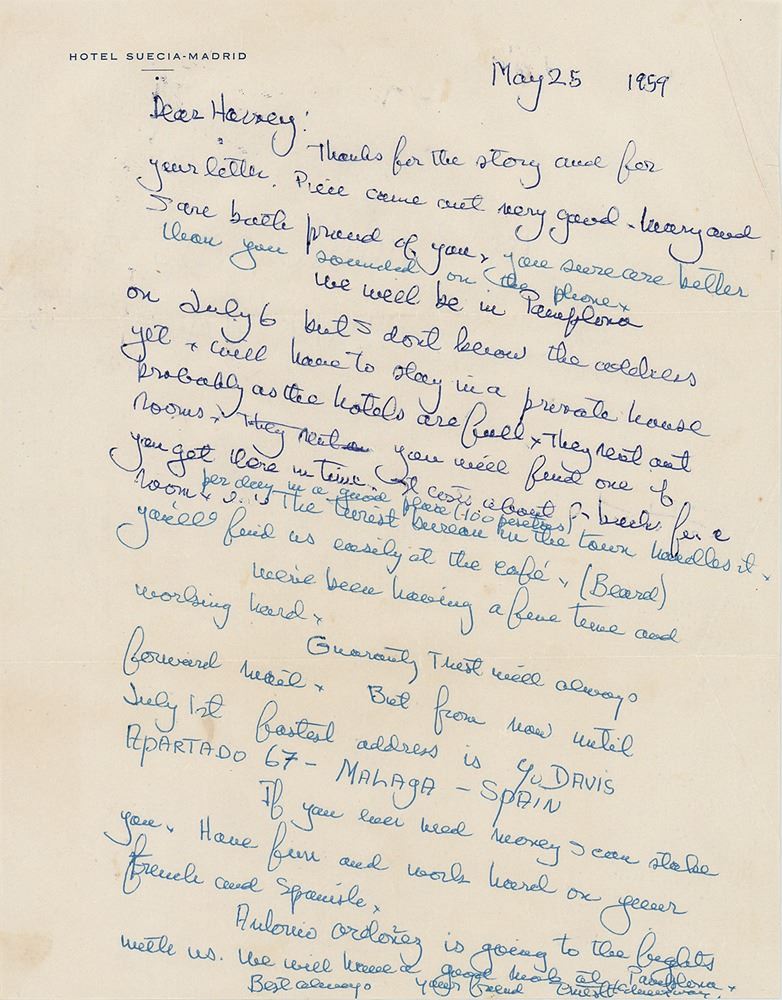 HOTEL SUECIA-MADRID
May 25 1959
Dear Harvey:
Thanks for the story and for
your letter. Piece came out very good. Mary and
I are both proud of you x you sure are better
than you sounded on the phone x
We will be in Pamplona
on July 6 but I dont know the address
yet x will have to stay in a private house
probably as the hotels are full x They rent out
rooms x They rent you will find one if
you get there in time. It costs about bucks for a
room x per day in a good place (100 pesetas)
The turist bureau in the town handles it x
you'll find us easily at the café x (Beard)
we've been having a fine time and
working hard x
Guaranty Trust will always
forward mail x But from now until
July 1st fastest address is % DAVIS
APARTADO 67 - MALAGA - SPAIN
If you ever need money I can stake
you x Have fun and work hard on your
French and Spanish x
Antonio Ordoñez is going to the fights
with us. We will have a good mob at Pamplona x
Best always your friend Ernest Hemingway